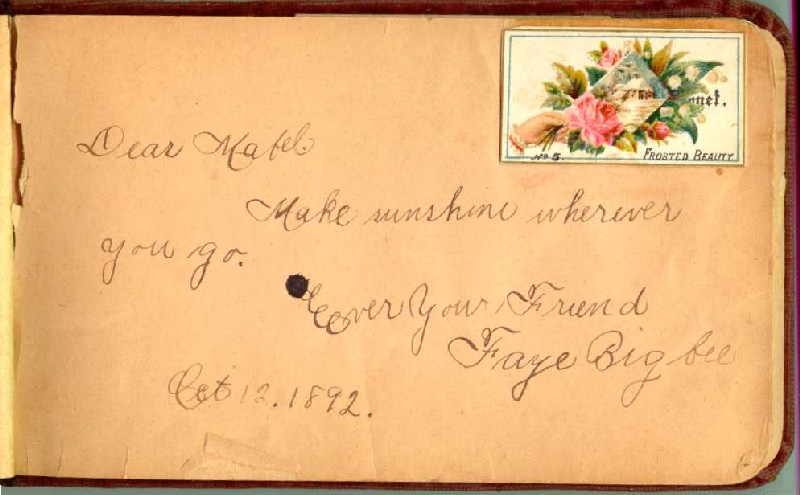 Dear Mabel.
Make sunshine wherever
you go.
Ever Your Friend
Faye Bigbee
Oct 12. 1892.
No 5.
FROSTED BEAUTY